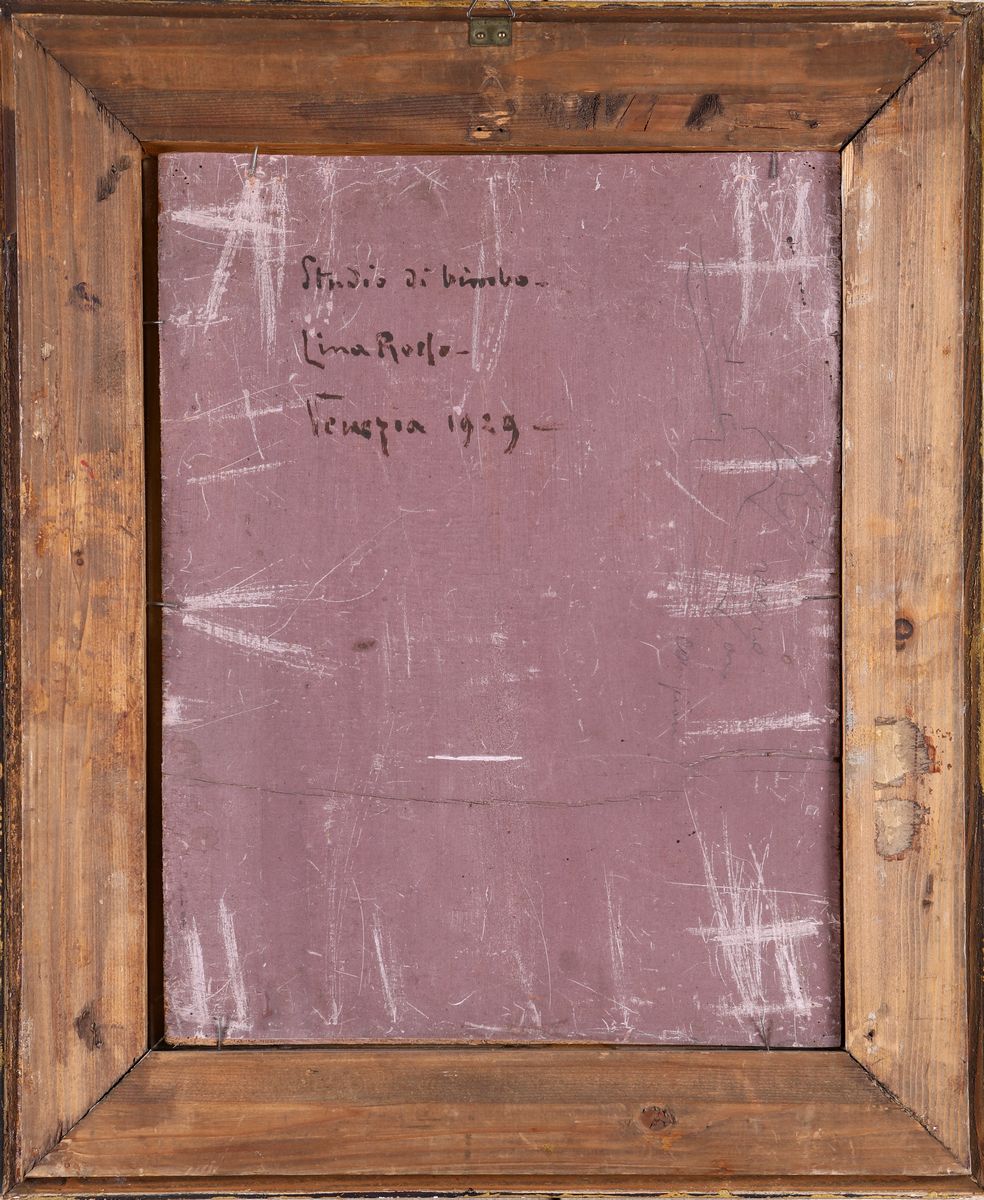 Studio di bimbo-
Lina Rosso-
Venezia 1929-